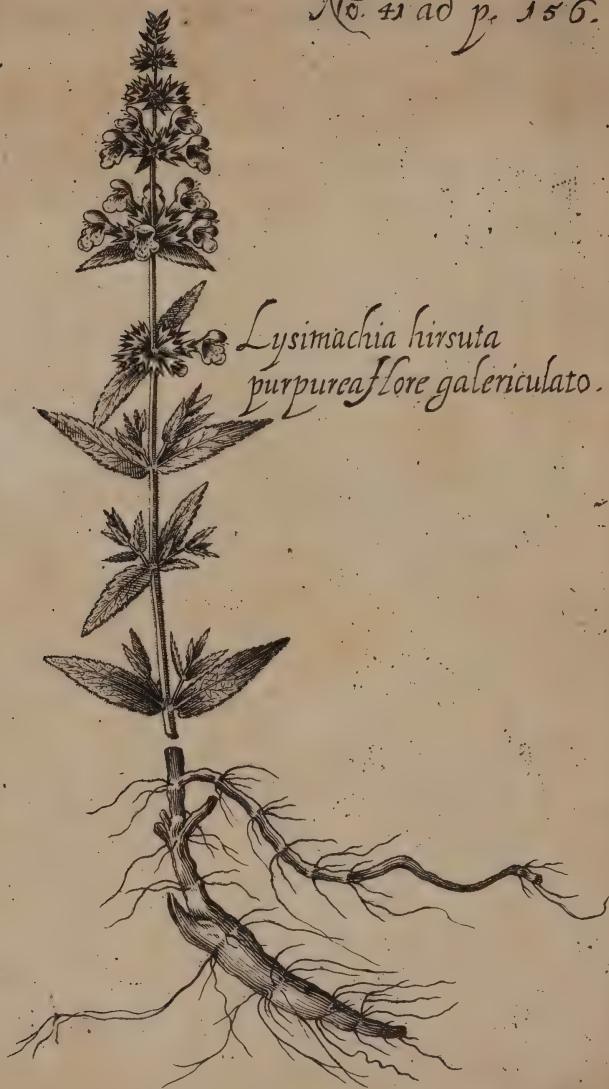 No. 41 ad p. 156.
Lysimachia hirsuta
purpurea flore galericulato.